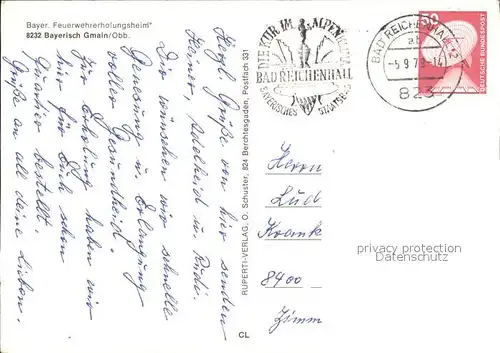 Bayer. Feuerwehrerholungsheim"
8232 Bayerisch Gmain/Obb.
Herzl. Grüße von hier senden
Heiner, Adelheid u. Rudi.
Dir wünschen wir schnelle
Genesung u. Erlangung
voller Gesundheid.
Zur Erholung haben wir
hier für Dich schon
Quartier bestellt.
Grüße an all deine Lieben.
RUPERTI-VERLAG, O. Schuster, 824 Berchtesgaden, Postfach 331
CL
DIE KUR IM ALPENKLIMA
BAD REICHENHALL
BAYERISCHES STAATSBAD
BAD REICHENHALL 12
ab
-5.9.79-14
823
50
DEUTSCHE BUNDESPOST
Herrn
Lud
Krank
8400
Zimm
privacy protection
Datenschutz